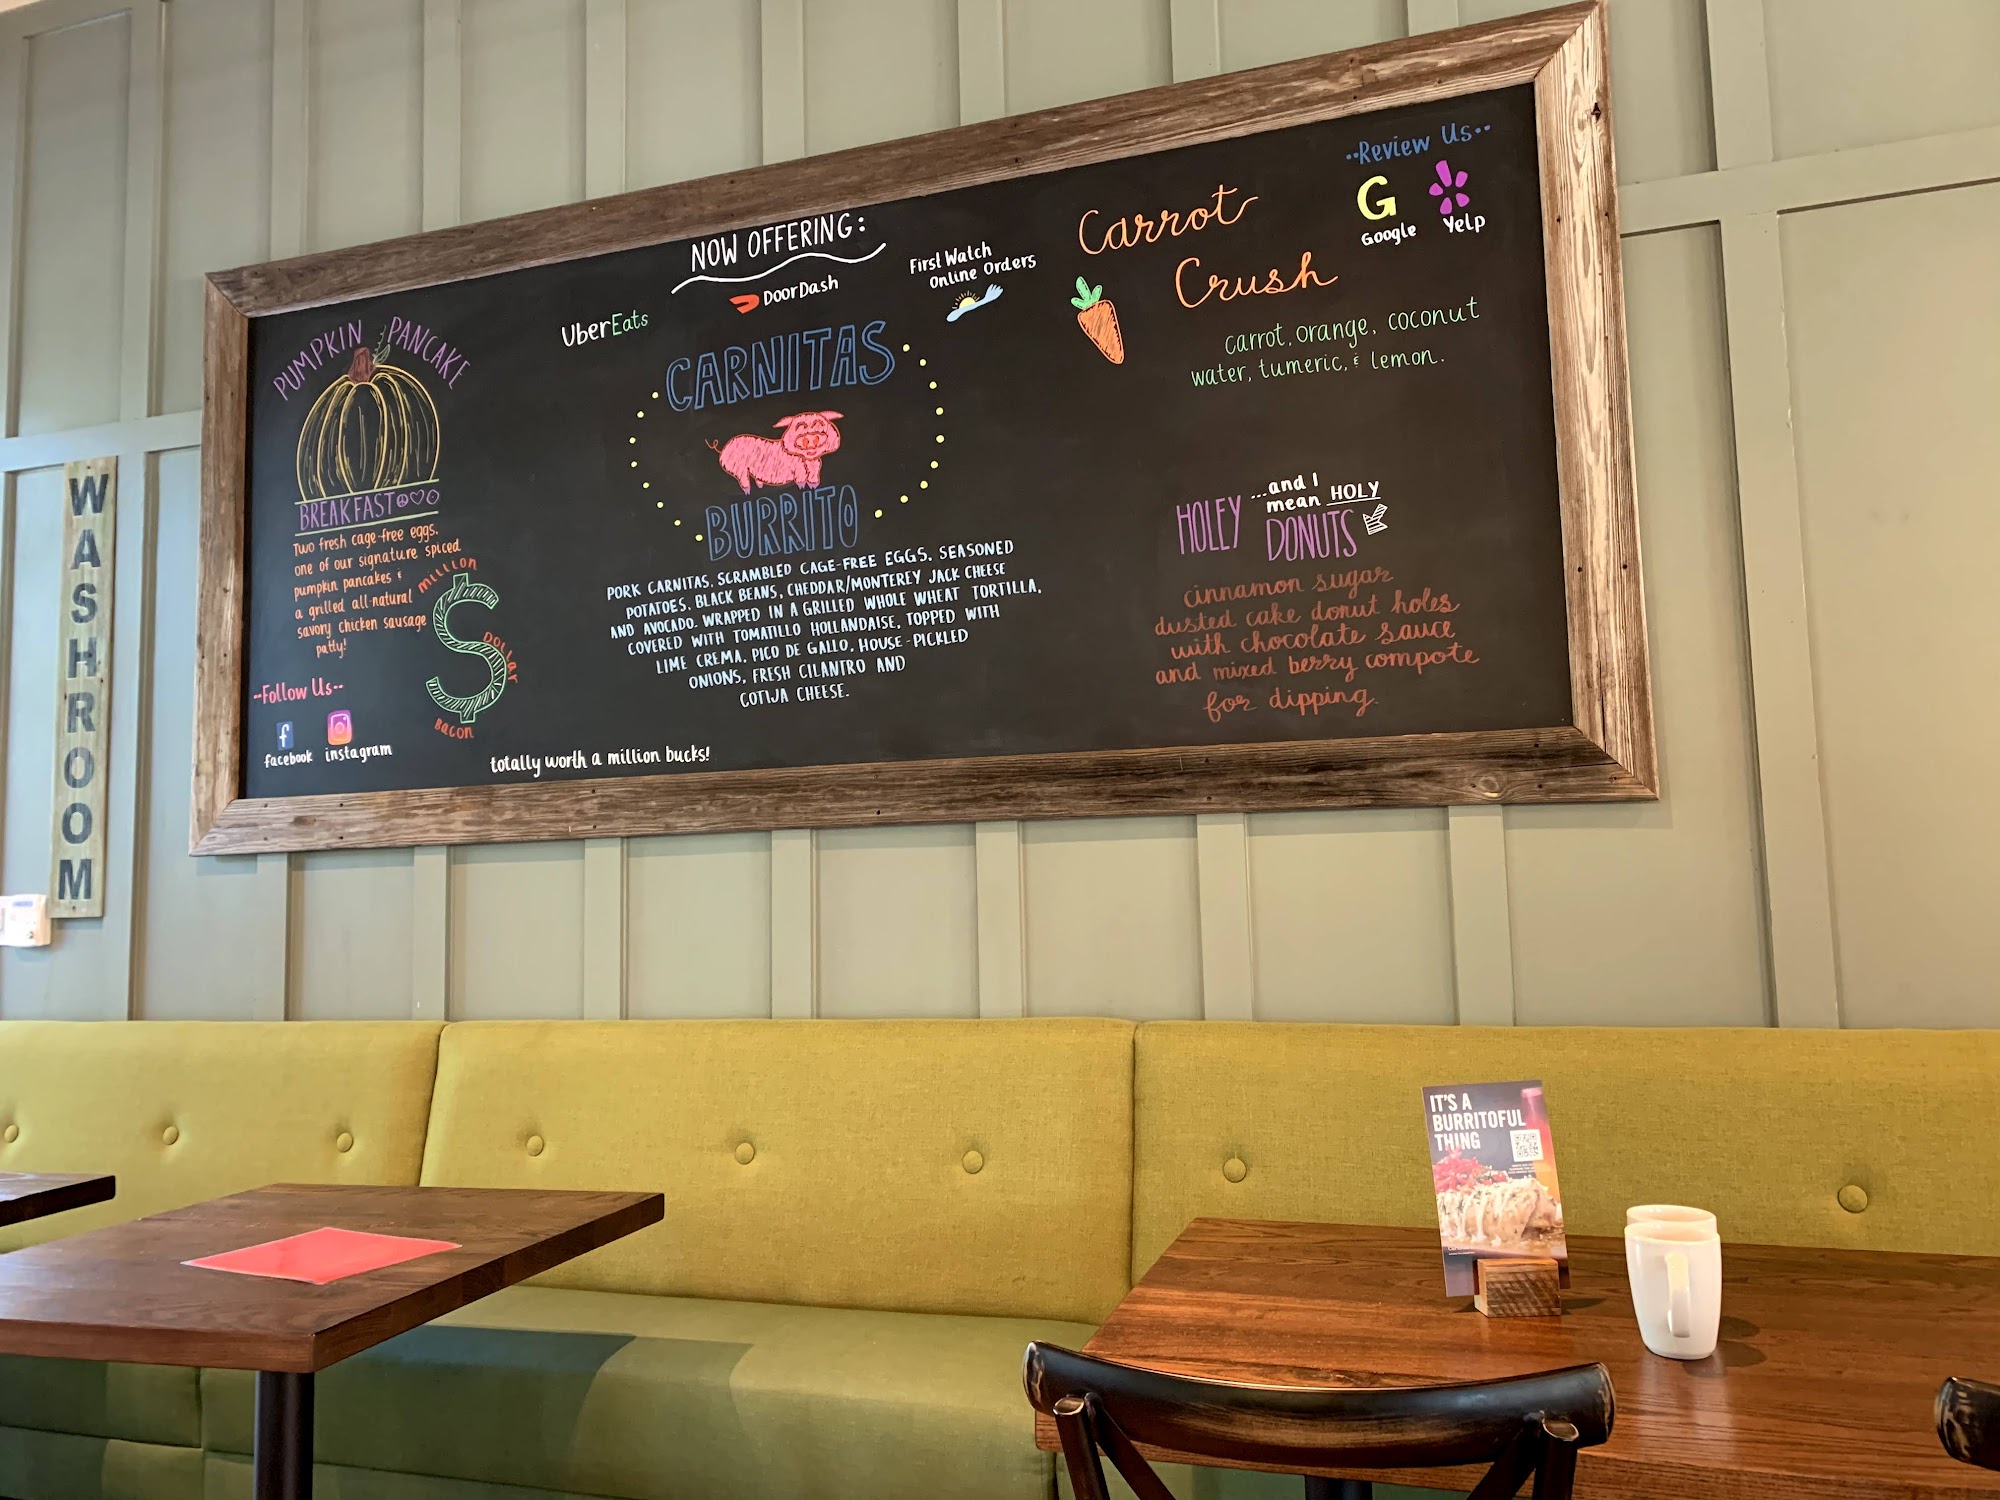 WASHROOM
PUMPKIN PANCAKE
BREAKFAST
Two fresh cage-free eggs,
one of our signature spiced
pumpkin pancakes &
a grilled all-natural
savory chicken sausage
patty!
million
$
DOLLAR
Bacon
totally worth a million bucks!
--Follow Us--
f
facebook
instagram
NOW OFFERING:
UberEats
DoorDash
First Watch
Online Orders
CARNITAS
BURRITO
PORK CARNITAS, SCRAMBLED CAGE-FREE EGGS, SEASONED
POTATOES, BLACK BEANS, CHEDDAR/MONTEREY JACK CHEESE
AND AVOCADO. WRAPPED IN A GRILLED WHOLE WHEAT TORTILLA,
COVERED WITH TOMATILLO HOLLANDAISE, TOPPED WITH
LIME CREMA, PICO DE GALLO, HOUSE-PICKLED
ONIONS, FRESH CILANTRO AND
COTIJA CHEESE.
Carrot
Crush
carrot, orange, coconut
water, tumeric, & lemon.
··Review Us··
G
Google
Yelp
HOLEY
...and I
mean HOLY
DONUTS
cinnamon sugar
dusted cake donut holes
with chocolate sauce
and mixed berry compote
for dipping.
IT'S A
BURRITOFUL
THING